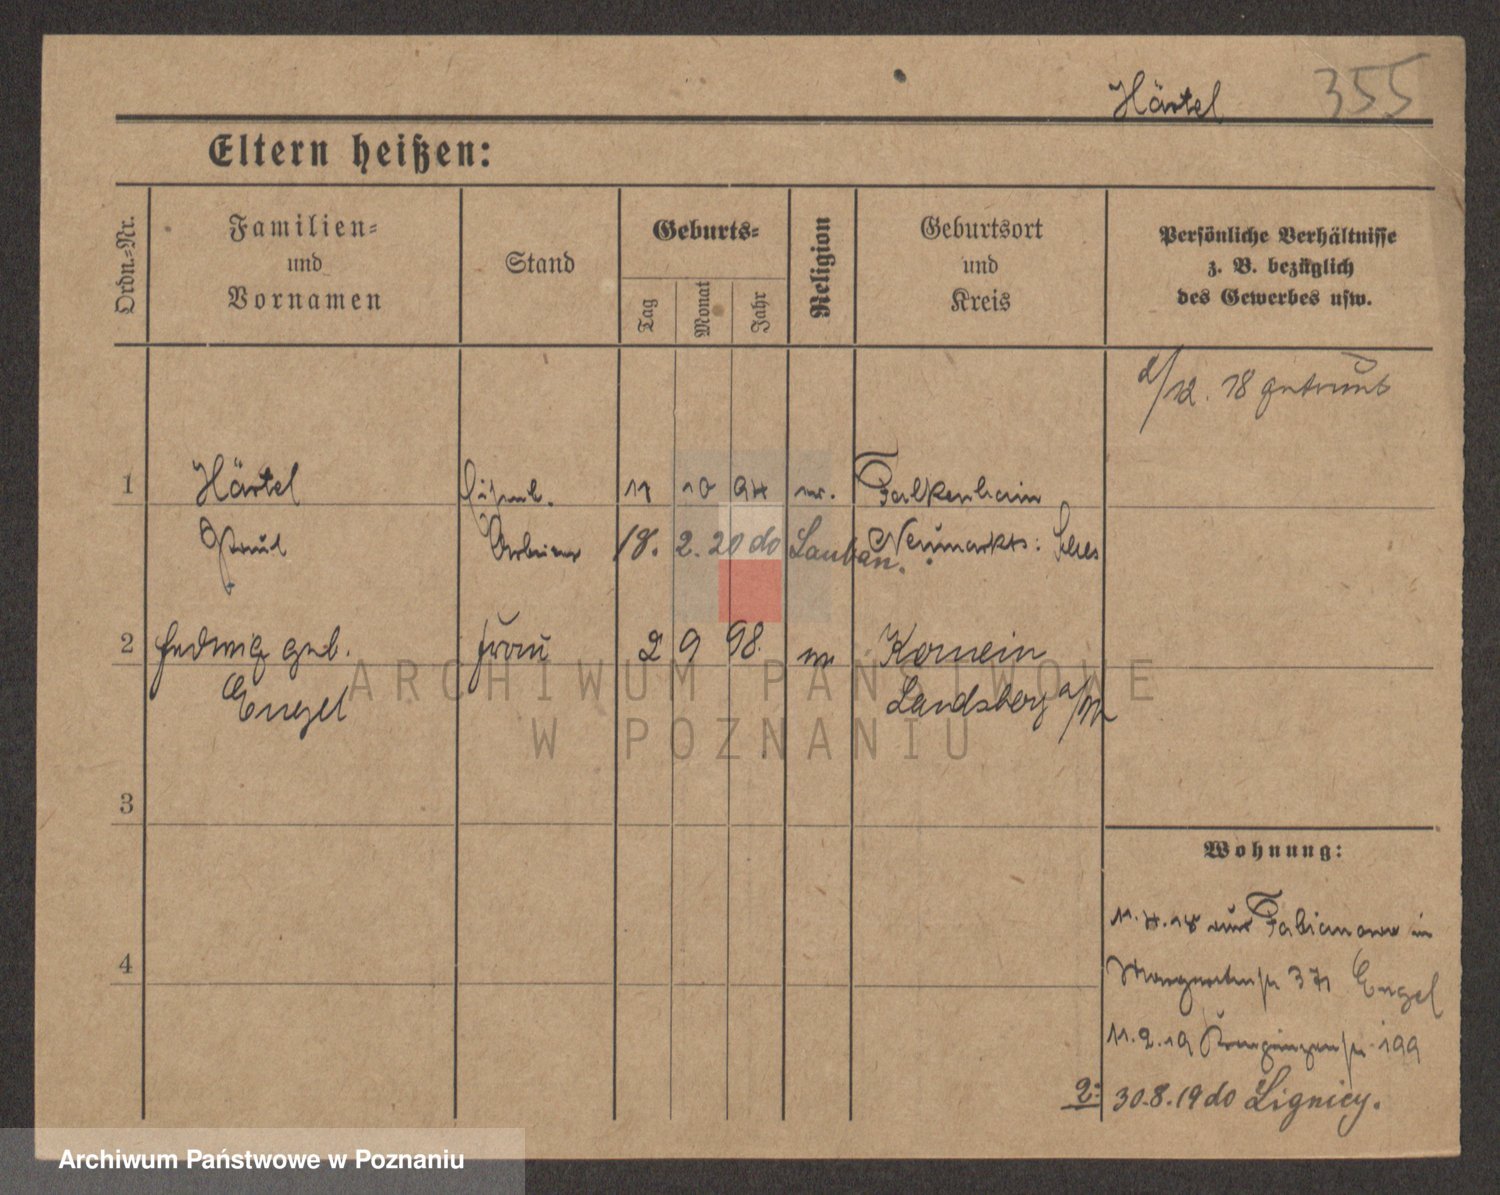 Härtel 355
Eltern heißen:
Ordn.-Nr.
Familien-
und
Vornamen
Stand
Geburts-
Tag
Monat
Jahr
Religion
Geburtsort
und
Kreis
Persönliche Verhältnisse
z. B. bezüglich
des Gewerbes usw.
2/12. 18 getraut
1 Härtel 11 10 94 Falkenhain
Paul Arbeiter 18. 2. 20 do Lauban. Neumarkt
2 Hedwig geb. Frau 2 9 98.
Engel Landsberg a/W
3
4
Wohnung:
11.4.18 aus Fabianowo in
37 Engel
11.2.19 199
2: 30.8.19 do Lignicy.
ARCHIWUM PAŃSTWOWE
W POZNANIU
Archiwum Państwowe w Poznaniu